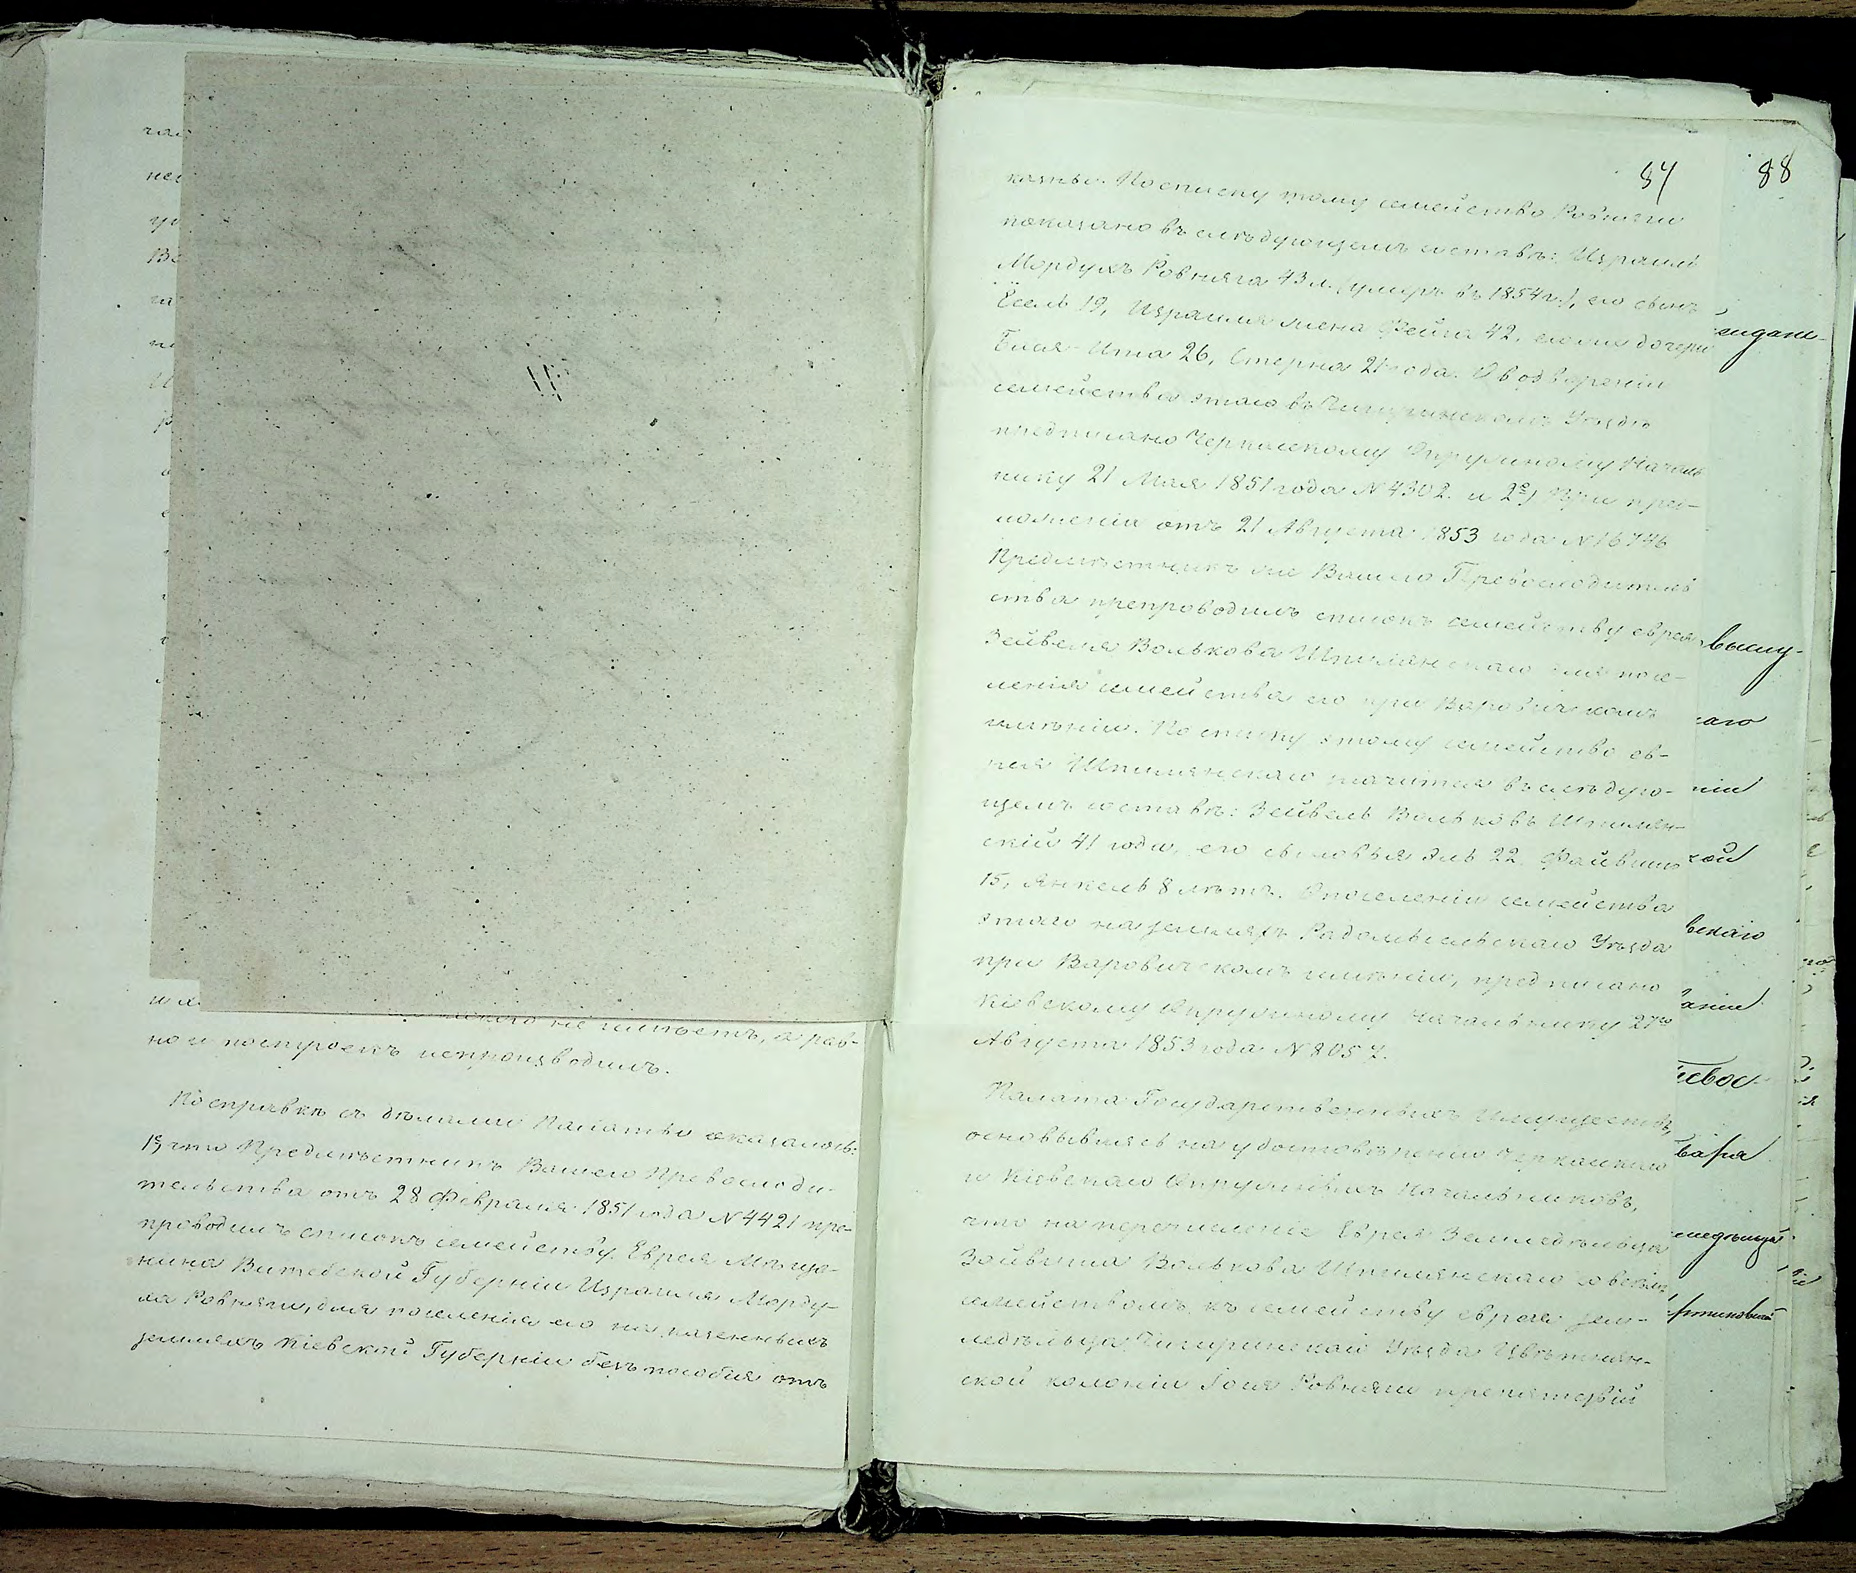 и х
не имеетъ, а рав-
но и построекъ непроизводилъ.
По справкѣ съ дѣлами Палаты оказалось:
1е) что Предмѣстникъ Вашего Превосходи-
тельства отъ 28 Февраля 1851 года N 4421 пре-
проводилъ списокъ семейству Еврея Мѣща-
нина Витебской Губерніи Израиля Морду-
ха Ровняги, для поселенія его на казенныхъ
земляхъ Кіевской Губерніи безъ пособія отъ
84 88
казны. По списку тому семейство Ровняги
показано въ слѣдующемъ составѣ: Израиль
Мордухъ Ровняга 43 л. (умеръ въ 1854 г.), его сынъ
Ёсель 19, Израиля жена Фейга 42, его же дочери
Бася-Ита 26, Стерна 21 года. О водвореніи
семейства этаго въ Чигиринскомъ Уѣздѣ
предписано Черкаскому Окружному Началь
нику 21 Мая 1851 года N 4302. и 2е) При пред-
ложеніи отъ 21 Августа 1853 года N 16746
Предмѣстникъ же Вашего Превосходитель
ства препроводилъ списокъ семейству еврея
Зейвеля Волькова Шполянскаго для посе-
ленія семейства его при Варовичскомъ
имѣніи. По списку этому семейство ев-
рея Шполянскаго значится въ слѣдую-
щемъ составѣ: Зейвель Вольковъ Шполян-
скій 41 года, его сыновья Эль 22, Файвишъ
15, Янкель 8 лѣтъ. О поселеніи семейства
этаго на земляхъ Радомысльскаго Уѣзда
при Варовичскомъ имѣніи, предписано
Кіевскому Окружному Начальнику 27го
Августа 1853 года N 8057.
Палата Государственныхъ Имуществъ,
основываясь на удостовѣреніи Черкаскаго
и Кіевскаго Окружныхъ Начальниковъ,
что на перечисленіе Еврея Земледѣльца
Зейвеля Волькова Шполянскаго со всѣмъ
семействомъ, къ семейству еврея зем-
ледѣльца Чигиринскаго Уѣзда Цвѣтнян-
ской колоніи Ровняги препятствій